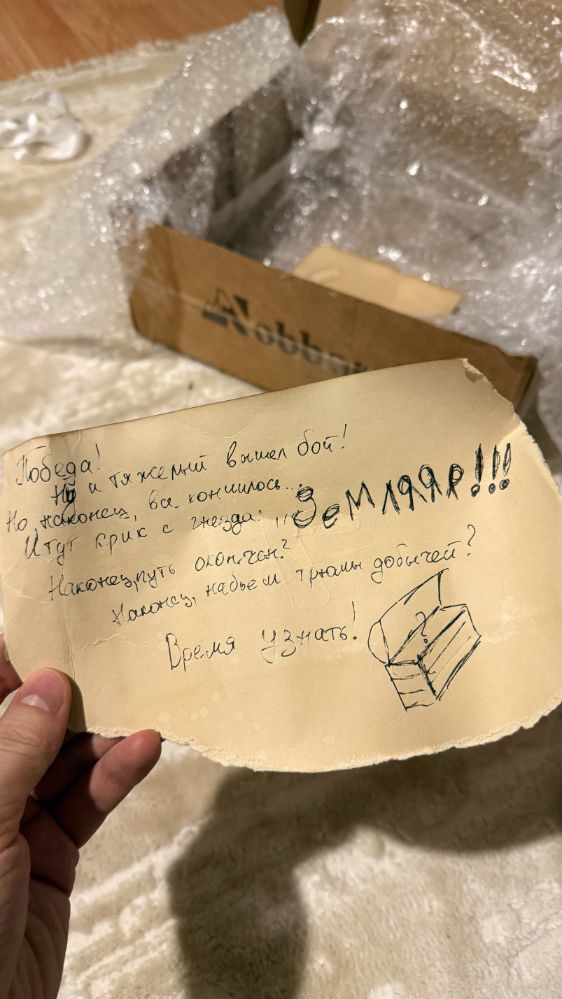 Nobba
Победа!
Ну и тяжелый вышел бой!
Но, наконец, все кончилось...
И тут крик с гнезда: ,,Земляяя!!!
Наконец, путь окончен?
Наконец, набьем трюмы добычей?
Время узнать!
?